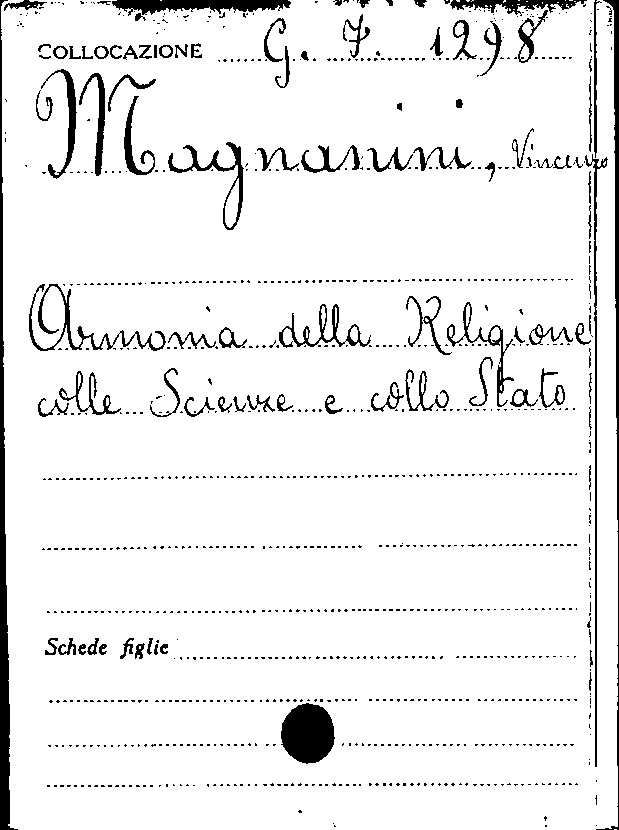 COLLOCAZIONE G. F. 1298
Magnanini, Vincenzo
Armonia della Religione
colle Scienze e collo Stato
Schede figlie